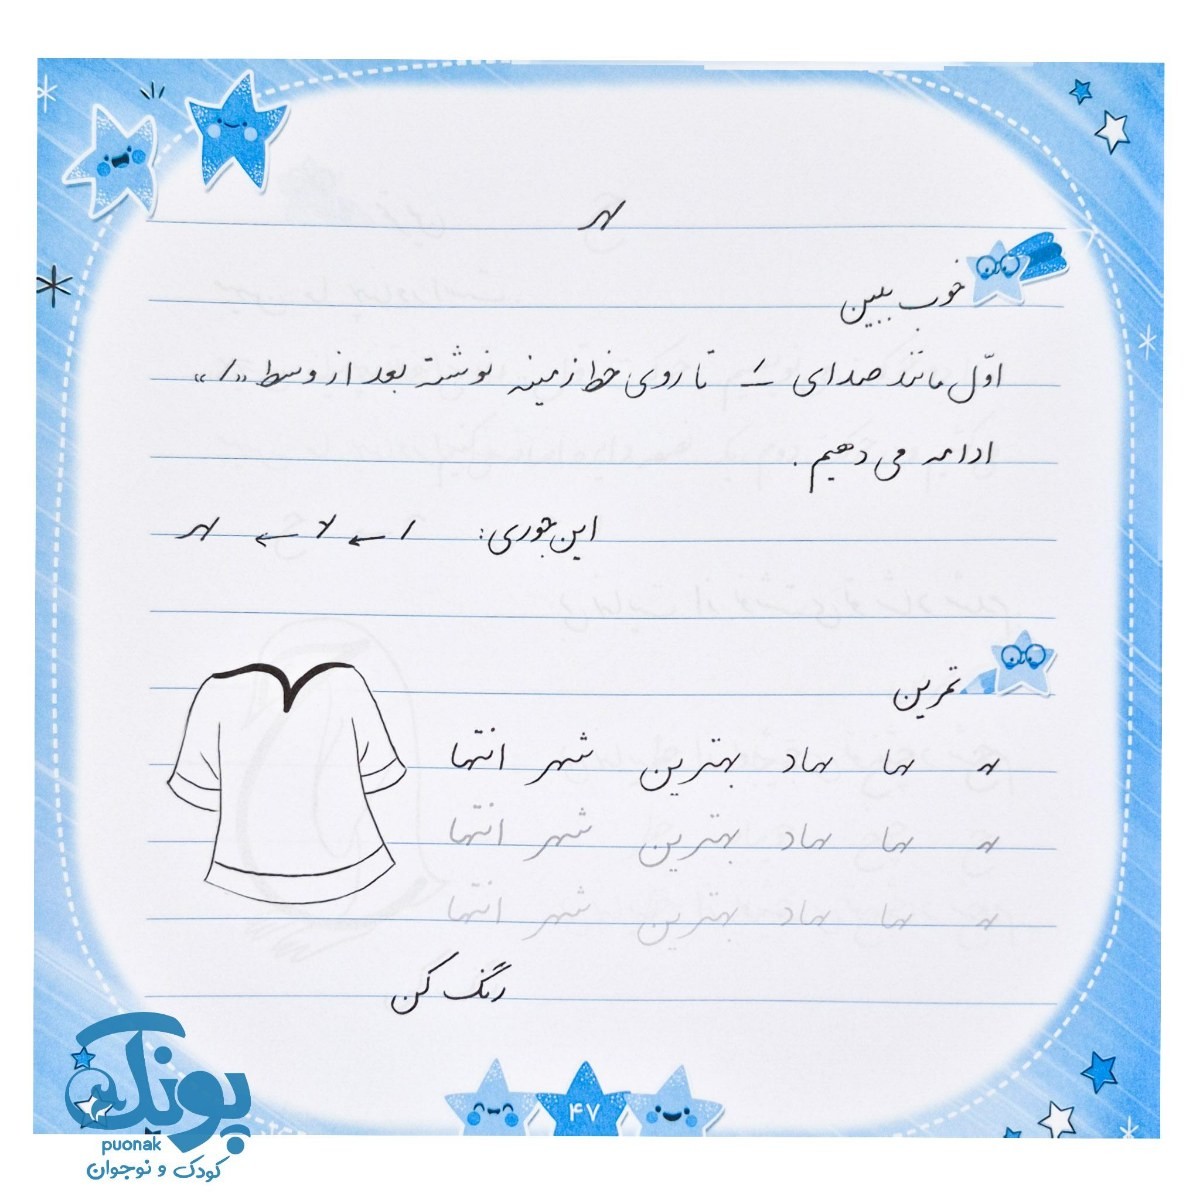 ـهـ
خوب ببین
اوّل مانند صدای ـَ تا روی خط زمینه نوشته بعد از وسط «/»
ادامه می دهیم.
این جوری: / ← ← ـهـ
تمرین
ـهـ ـها ـهاد بهترین شهر انتها
ـهـ ـها ـهاد بهترین شهر انتها
ـهـ ـها ـهاد بهترین شهر انتها
رنگ کن
۴۷
پونک
puonak
کودک و نوجوان